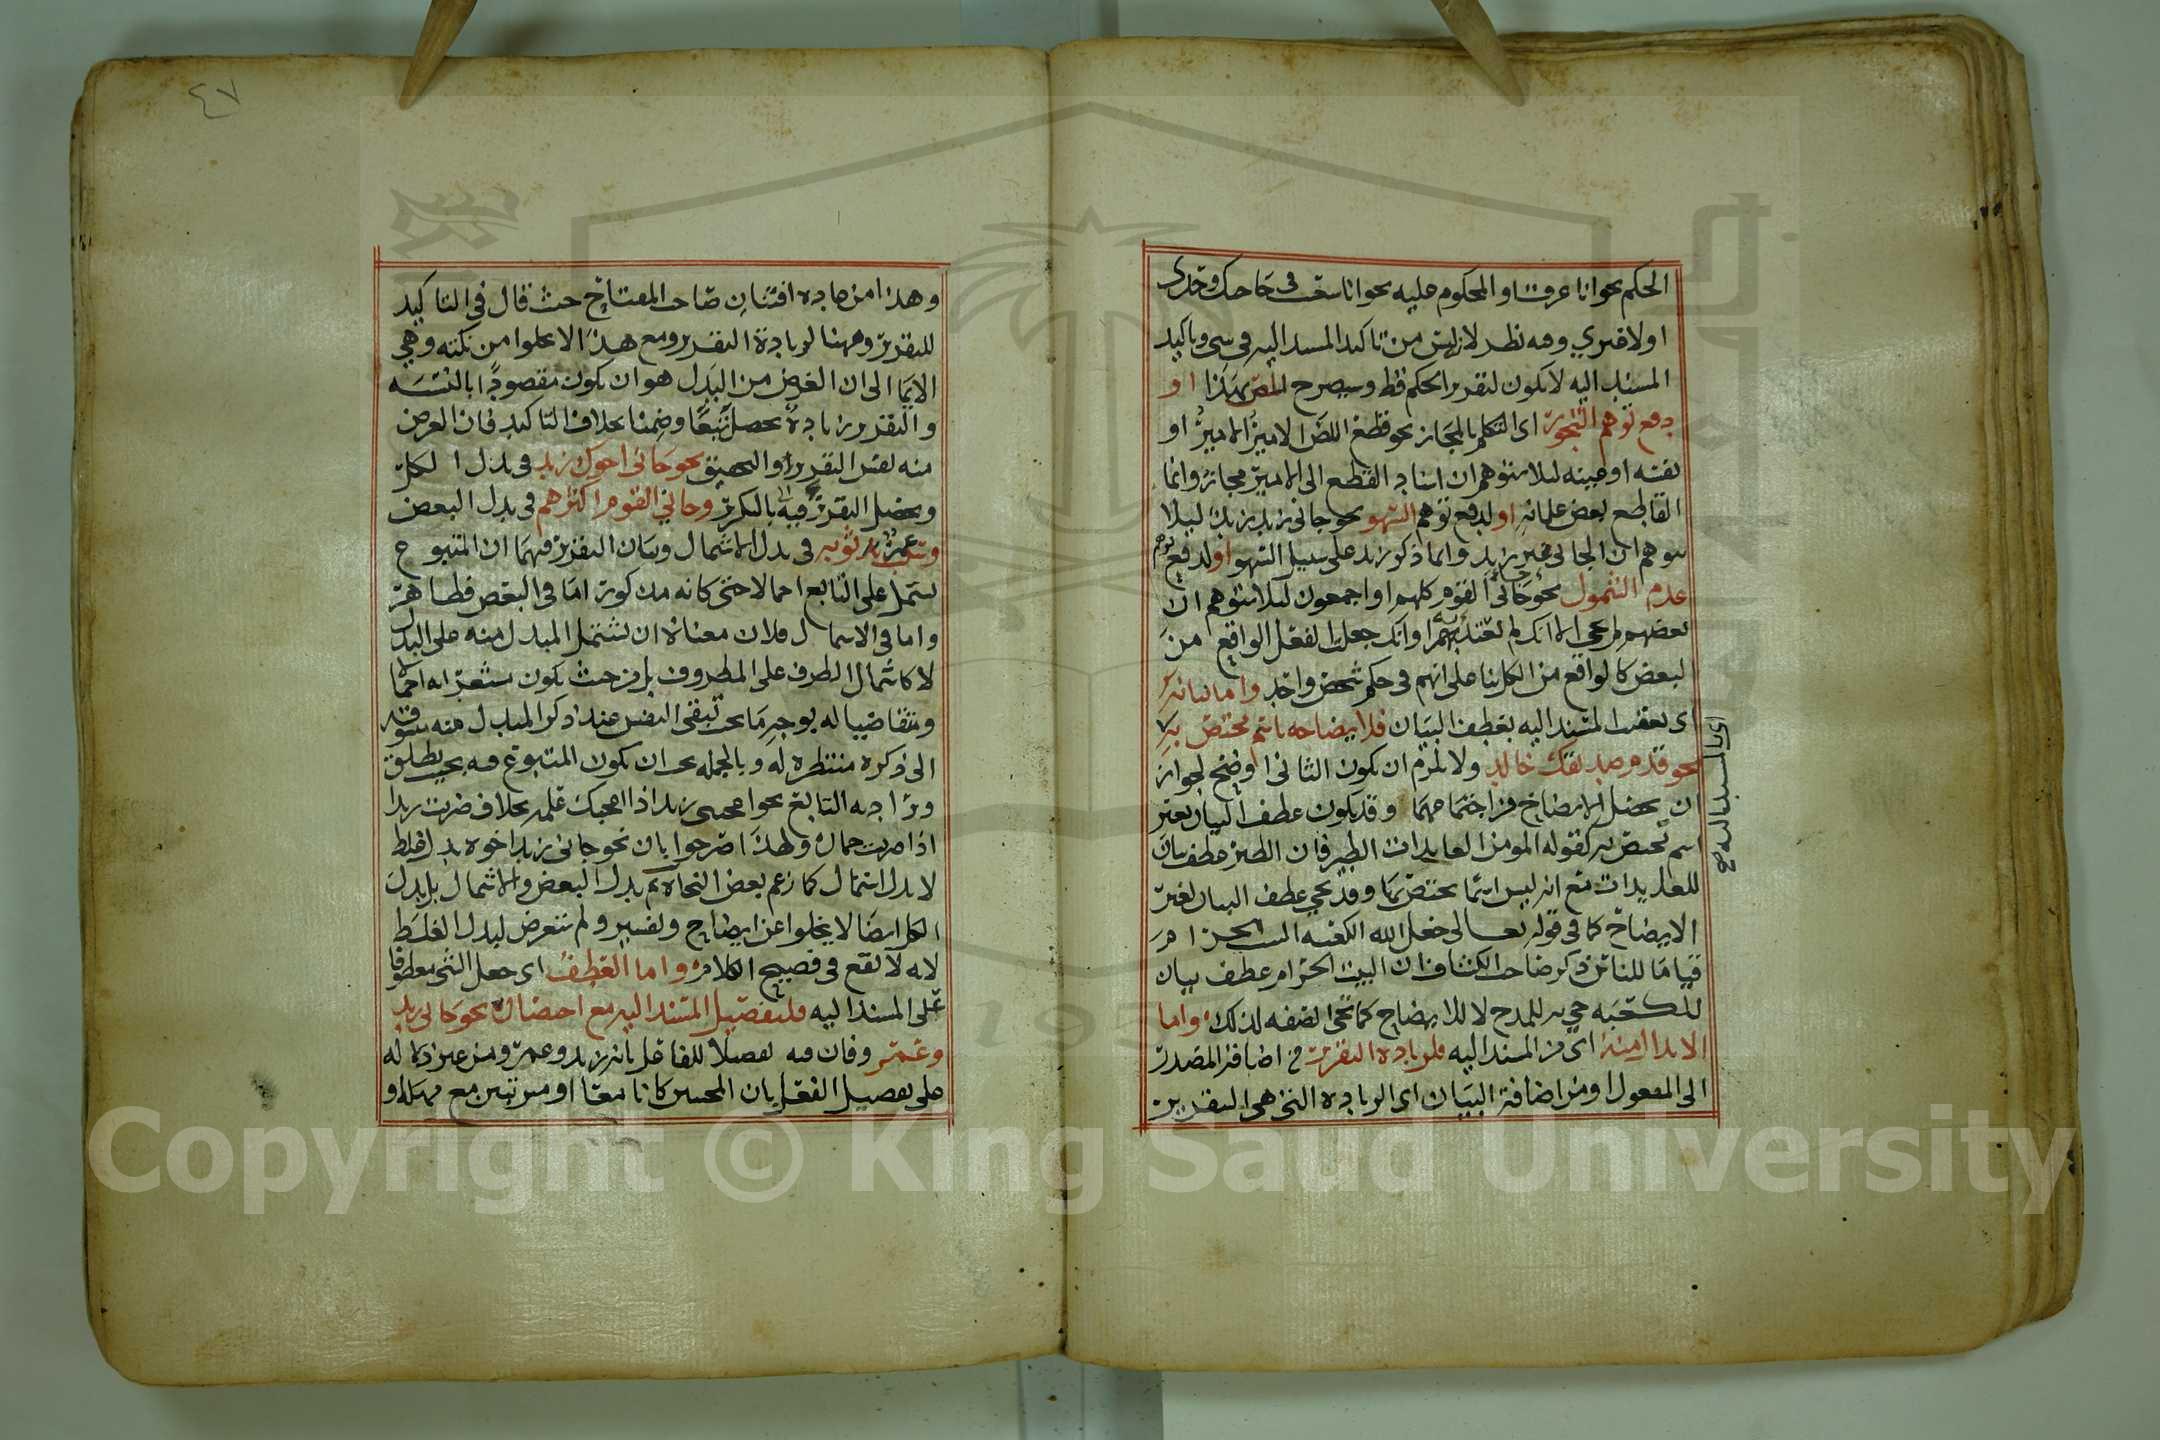 الحكم نحو انا عرفت او المحكوم عليه نحو انا سعيت في حاجتك وحدي
او لا غيري وفيه نظر لانه ليس من تاكيد المسند اليه في شي وتاكيد
المسند اليه لا يكون لتقرير الحكم قط وسيصرح المص بهذا او
دفع توهم التجوز اي التكلم بالمجاز نحو قطع اللص الامير الامير او
نفسه او عينه ليلا يتوهم ان اسناد القطع الى الامير مجاز وانما
القاطع بعض غلمانه او لدفع توهم السهو نحو جاني زيد زيد ليلا
يتوهم ان الجاني غير زيد وانما ذكر زيد على سبيل السهو او لدفع توهم
عدم الشمول نحو جاني القوم كلهم او اجمعون ليلا يتوهم ان
بعضهم لم يجي الا انك لم تعتد بهم او انك جعلت الفعل الواقع من
البعض كالواقع من الكل بنا على انهم في حكم شخص واحد واما بيانه
اي تعقيب المسند اليه بعطف البيان فلايضاحه باسم مختص به
نحو قدم صديقك خالد ولا يلزم ان يكون الثاني اوضح لجواز
ان يحصل الايضاح من اجتماعهما وقد يكون عطف البيان بغير
اسم مختص به كقوله المومن العايذات الطير فان الطير عطف بيان
للعايذات مع انه ليس اسما يختص بها وقد يجي عطف البيان لغير
الايضاح كما في قوله تعالى جعل الله الكعبه البيت الحرام
قياما للناس ذكر صاحب الكشاف ان البيت الحرام عطف بيان
للكعبه جي به للمدح لا للايضاح كما تجي الصفه لذلك واما
الابدال منه اي من المسند اليه فلزيادة التقرير من اضافة المصدر
الى المفعول او من اضافة البيان اي الزيادة التي هي التقرير
اي المسند اليه صح
٤٧
وهذا من عادة افتنان صاحب المفتاح حيث قال في التاكيد
للتقرير وههنا لزيادة التقرير ومع هذا لا يخلوا من نكته وهي
الايما الى ان الغرض من البدل هو ان يكون مقصودا بالنسبه
والتقرير زيادة يحصل تبعا وضمنا بخلاف التاكيد فان الغرض
منه نفس التقرير والتحقيق نحو جاني اخوك زيد في بدل الكل
ويحصل التقرير فيه بالتكرير وجاني القوم اكثرهم في بدل البعض
وسلب عمرو ثوبه في بدل الاشتمال وبيان التقرير فيهما ان المتبوع
يشتمل على التابع اجمالا حتى كانه مذكور اما في البعض فظاهر
واما في الاشتمال فلان معناه ان يشتمل المبدل منه على البدل
لا كاشتمال الظرف على المظروف بل من حيث يكون مشعرا به اجمالا
ومتقاضيا له بوجه ما بحيث تبقى النفس عند ذكر المبدل منه متشوقه
الى ذكره منتظرة له وبالجمله يجب ان يكون المتبوع فيه بحيث يطلق
ويراد به التابع نحو اعجبني زيد اذا اعجبك علمه بخلاف ضربت زيدا
اذا ضربت حماره ولهذا صرحوا بان نحو جاني زيد اخوه بدل غلط
لا بدل اشتمال كما زعم بعض النحاة ثم بدل البعض والاشتمال بل بدل
الكل ايضا لا يخلوا عن ايضاح وتفسير ولم يتعرض لبدل الغلط
لانه لا يقع في فصيح الكلام واما العطف اي جعل الشي معطوفا
على المسند اليه فلتفصيل المسند اليه مع اختصار نحو جاني زيد
وعمرو فان فيه تفصيلا للفاعل بانه زيد وعمرو من غير دلاله
على تفصيل الفعل بان المجيين كانا معا او مرتبين مع مهله او
Copyright © King Saud University